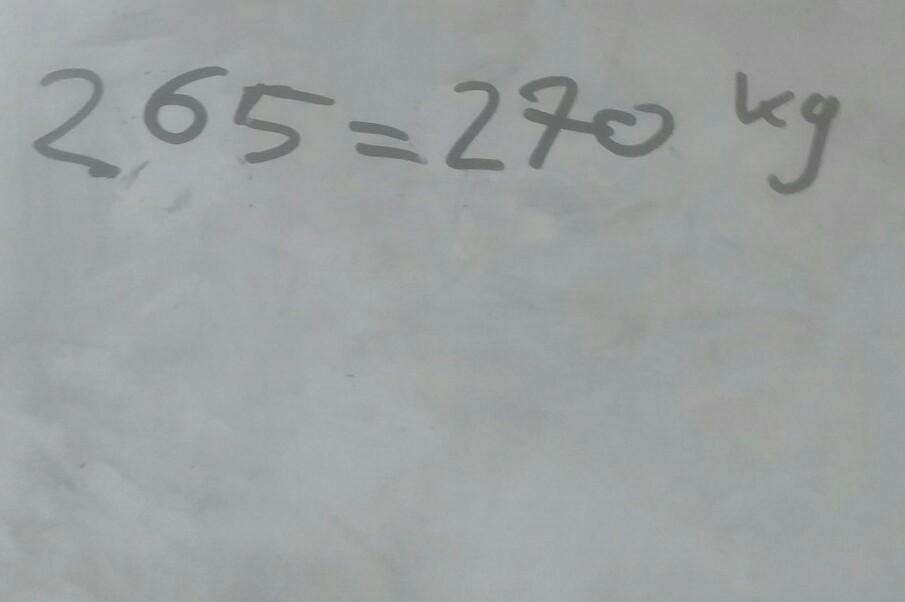 265=270 kg